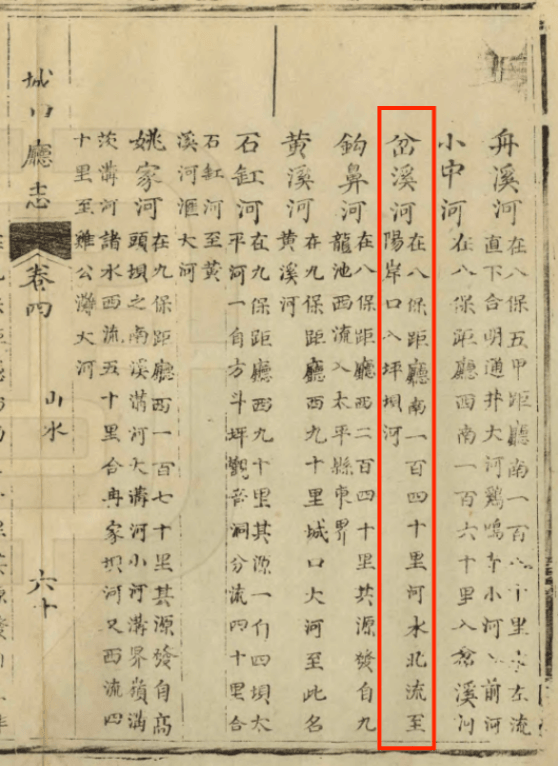 舟溪河
在八保五甲距廳南一百八十里水左流
直下合明通井大河鷄鳴寺小河入前河
小中河
在八保距廳西南一百六十里入岔溪河
岔溪河
在八保距廳南一百四十里河水北流至
陽岸口入坪垻河
鈎鼻河
在八保距廳西二百四十里其源發自九
龍池西流入太平縣東界
黄溪河
在九保距廳西九十里城口大河至此名
黄溪河
石缸河
在九保距廳西九十里其源一行四垻太
平河一自方斗坪觀音洞分流四十里合
石缸河至黄
溪河滙大河
姚家河
在九保距廳西一百七十里其源發自高
頭垻之南溪溝河大溝河小河溝界嶺溝
茨溝河諸水西流五十里合冉家垻河又西流四
十里至雞公灣大河
城口廳志
卷四
山水
六十